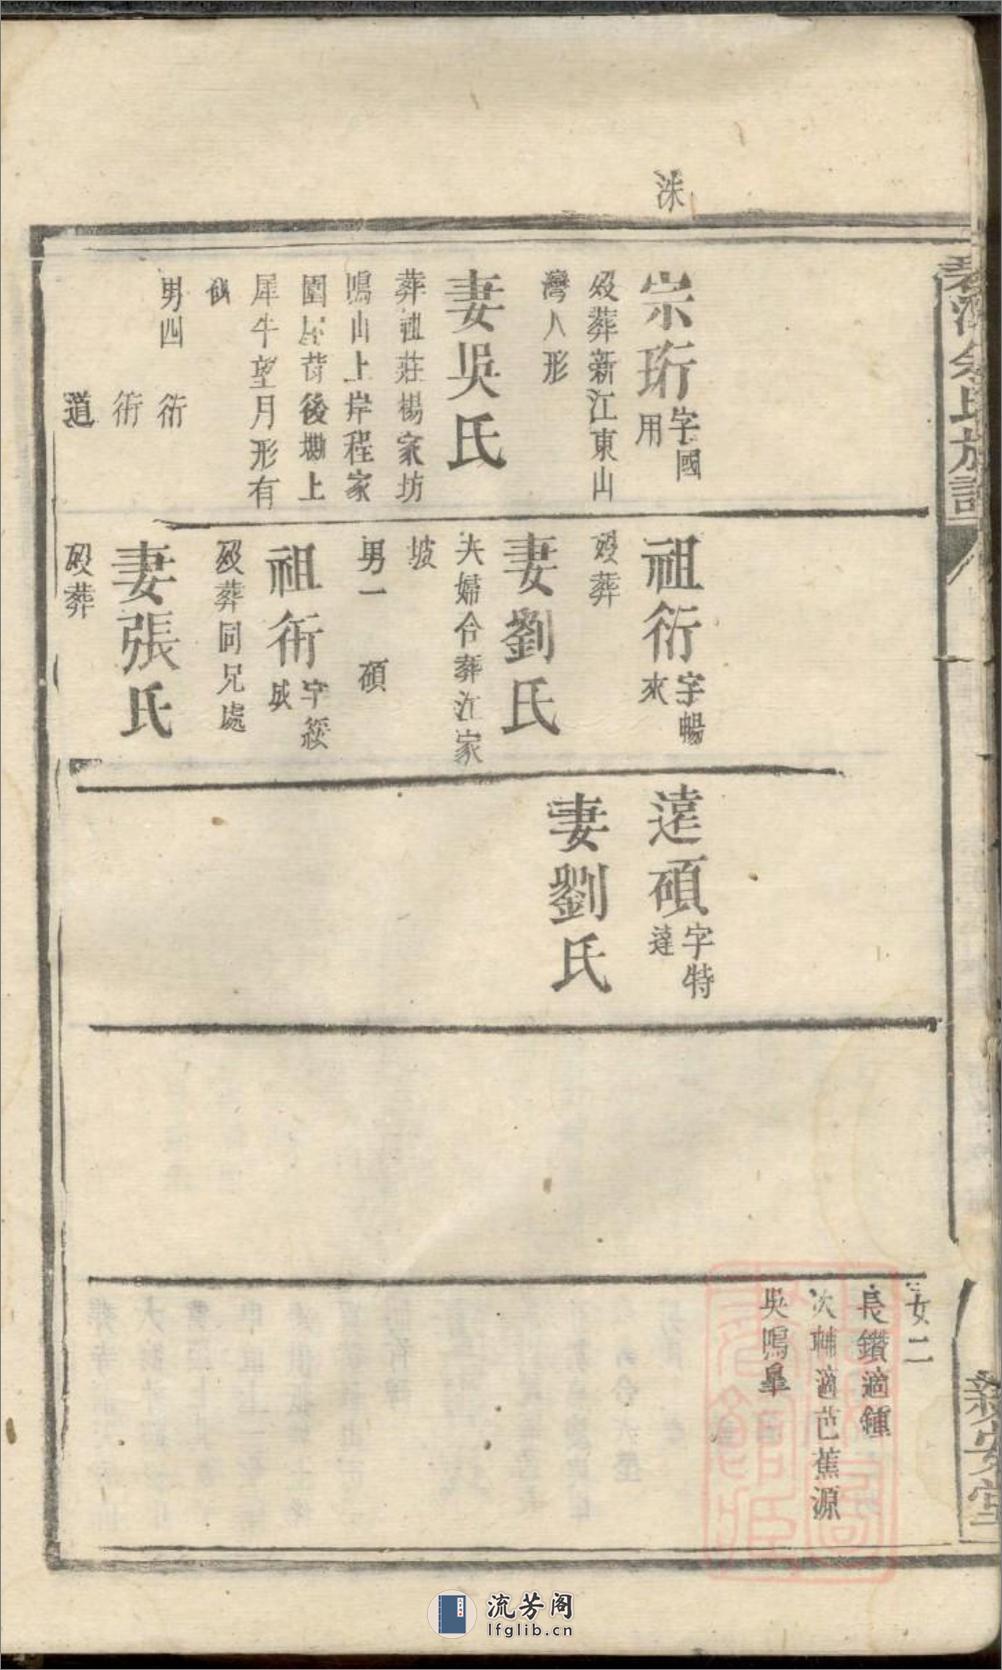 洙
宗珩字國用
歿葬新江東山
灣人形
妻吳氏
葬祖莊楊家坊
鳴山上岸程家
園屋背後墈上
犀牛望月形有
男四 衍
術
道
祖衍字暢來
歿葬
妻劉氏
夫婦合葬江家
坡
男一 碩
祖術字綏成
歿葬同兄處
妻張氏
歿葬
遠碩字特達
妻劉氏
女二
長鑽適鍾
次輔適芭蕉源
吳鳴皐
余氏族譜
新安堂
流芳阁
lfglib.cn